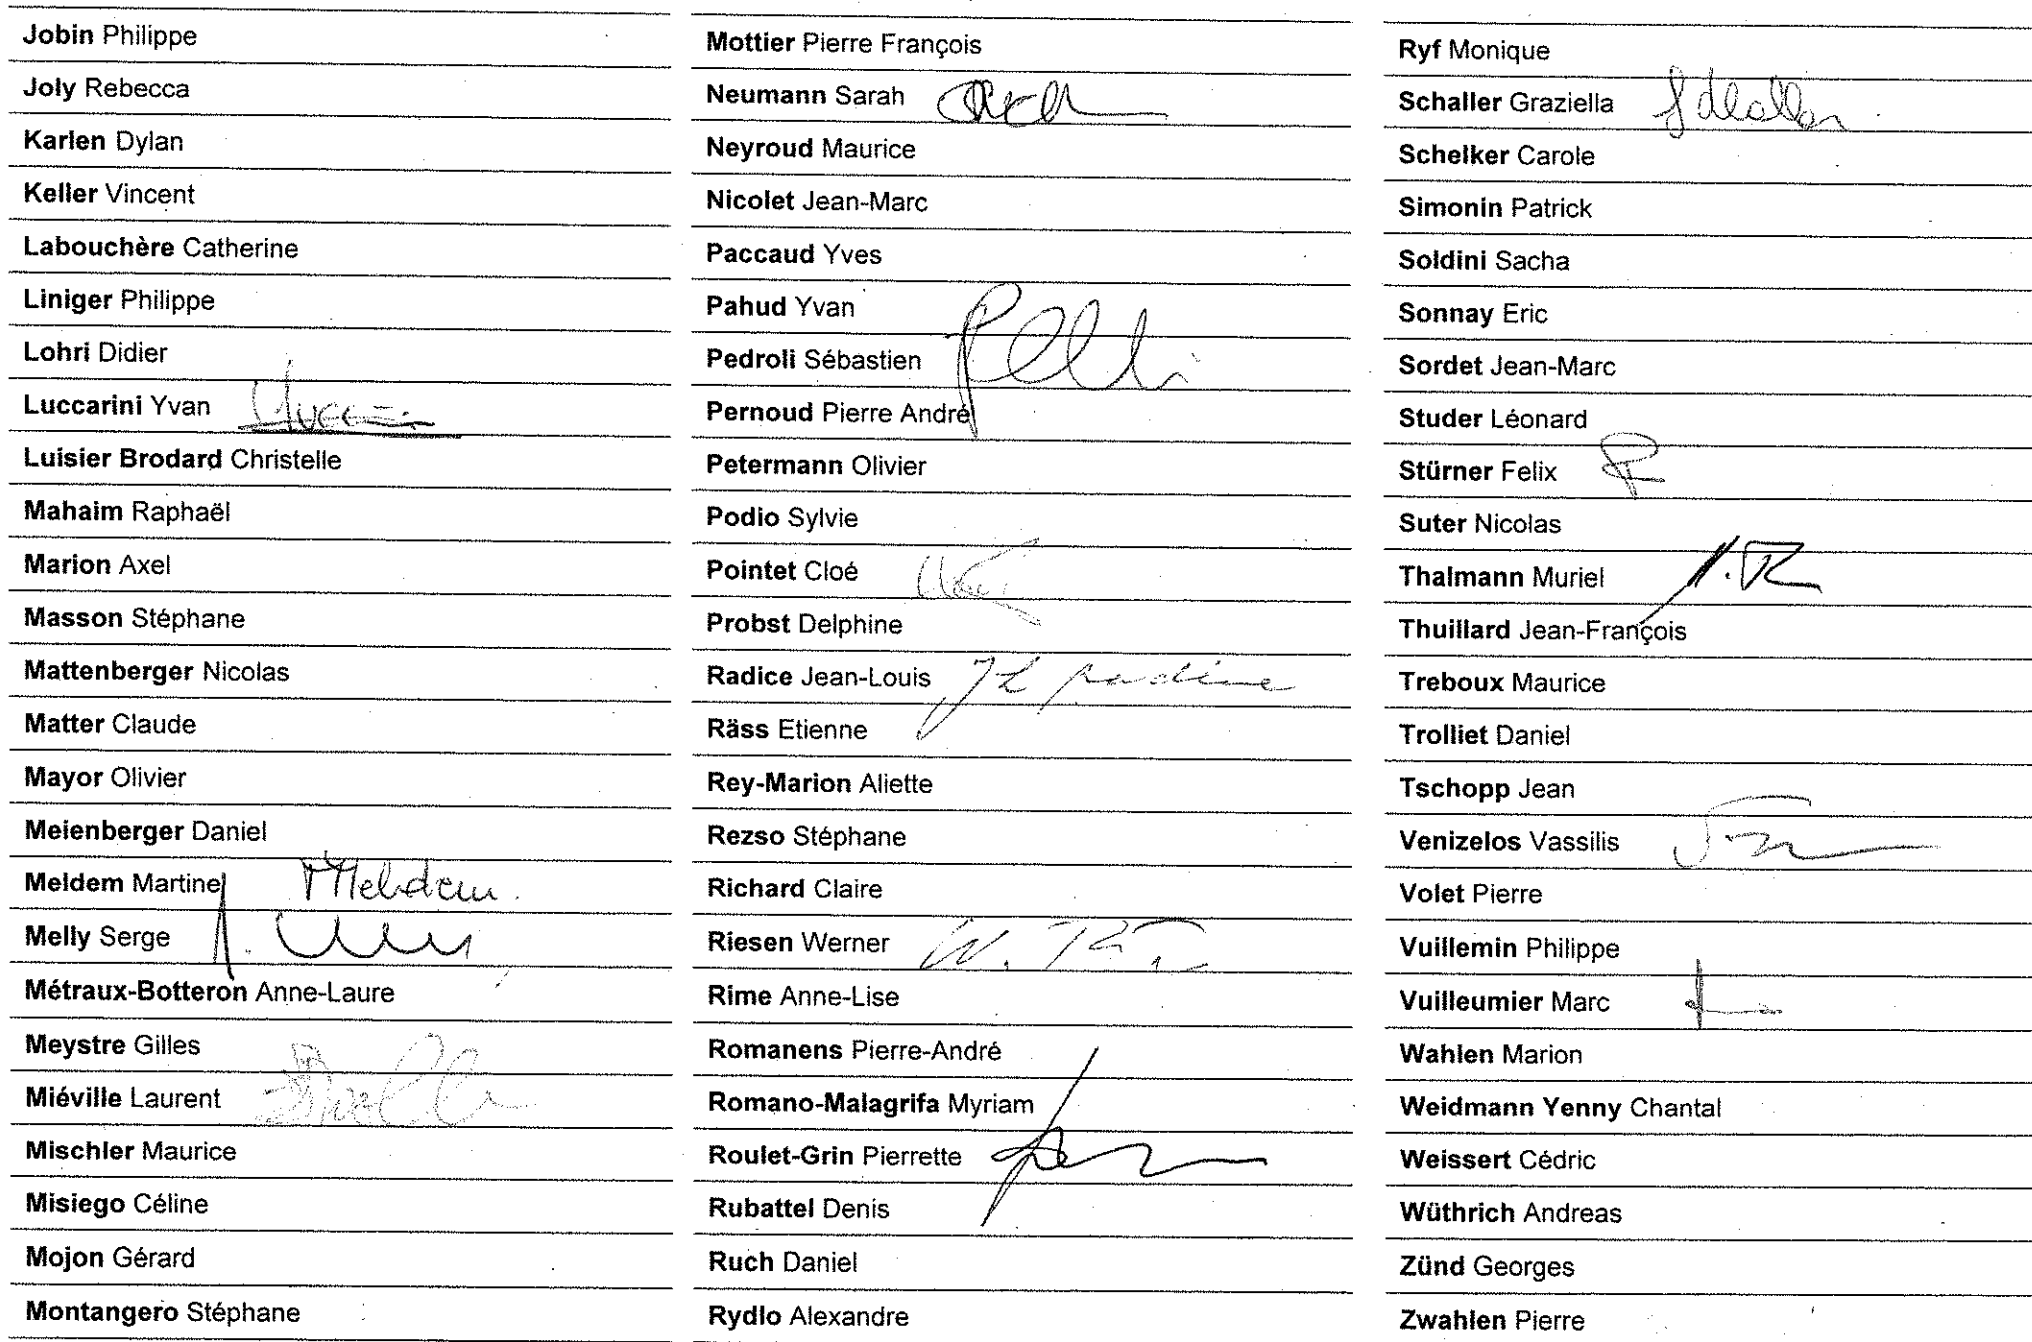 Jobin Philippe
Joly Rebecca
Karlen Dylan
Keller Vincent
Labouchère Catherine
Liniger Philippe
Lohri Didier
Luccarini Yvan
Luisier Brodard Christelle
Mahaim Raphaël
Marion Axel
Masson Stéphane
Mattenberger Nicolas
Matter Claude
Mayor Olivier
Meienberger Daniel
Meldem Martine MMeldem
Melly Serge
Métraux-Botteron Anne-Laure
Meystre Gilles
Miéville Laurent
Mischler Maurice
Misiego Céline
Mojon Gérard
Montangero Stéphane
Mottier Pierre François
Neumann Sarah
Neyroud Maurice
Nicolet Jean-Marc
Paccaud Yves
Pahud Yvan
Pedroli Sébastien
Pernoud Pierre André
Petermann Olivier
Podio Sylvie
Pointet Cloé
Probst Delphine
Radice Jean-Louis JL Radice
Räss Etienne
Rey-Marion Aliette
Rezso Stéphane
Richard Claire
Riesen Werner
Rime Anne-Lise
Romanens Pierre-André
Romano-Malagrifa Myriam
Roulet-Grin Pierrette
Rubattel Denis
Ruch Daniel
Rydlo Alexandre
Ryf Monique
Schaller Graziella
Schelker Carole
Simonin Patrick
Soldini Sacha
Sonnay Eric
Sordet Jean-Marc
Studer Léonard
Stürner Felix
Suter Nicolas
Thalmann Muriel
Thuillard Jean-François
Treboux Maurice
Trolliet Daniel
Tschopp Jean
Venizelos Vassilis
Volet Pierre
Vuillemin Philippe
Vuilleumier Marc
Wahlen Marion
Weidmann Yenny Chantal
Weissert Cédric
Wüthrich Andreas
Zünd Georges
Zwahlen Pierre